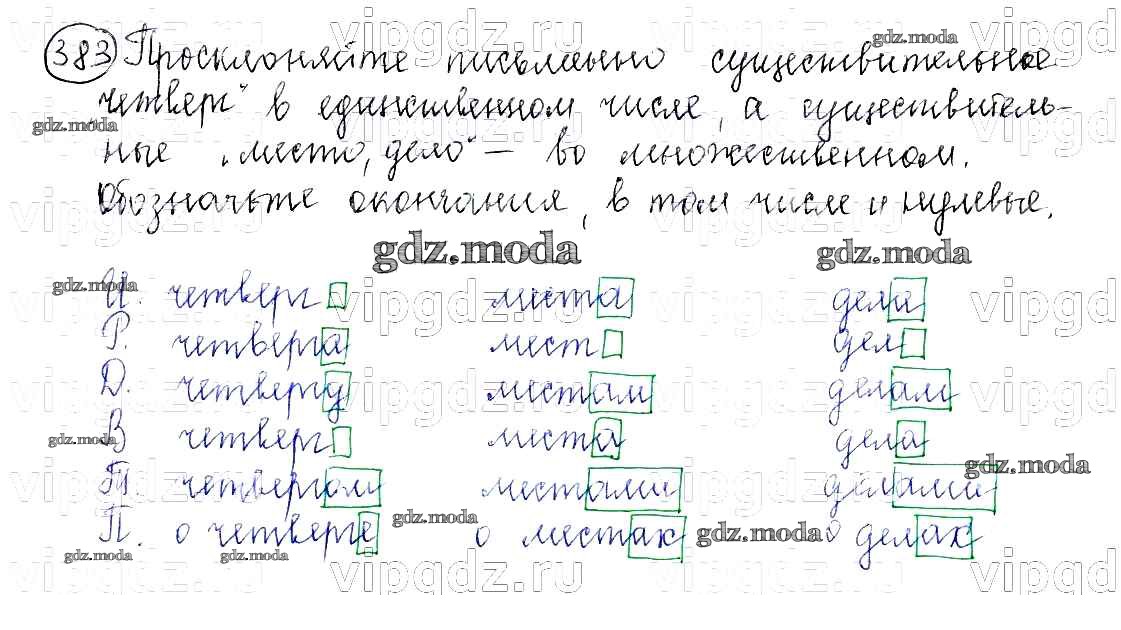 383 Просклоняйте письменно существительное
четверг" в единственном числе, а существитель-
ные „место, дело" – во множественном.
Обозначьте окончания, в том числе и нулевые.
И. четверг места дела
Р. четверга мест дел
Д. четвергу местам делам
В четверг места дела
Т. четвергом местами делами
П. о четверге о местах о делах
gdz.moda
gdz.moda
gdz.moda
gdz.moda
gdz.moda
gdz.moda
gdz.moda
gdz.moda
gdz.moda
gdz.moda
gdz.moda
vipgdz.ru